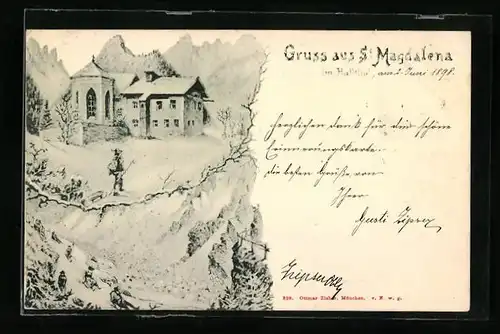 Gruss aus St. Magdalena
im Hallthal, am 2. Juni 1898.
Herzlichen Dank für die schöne
Erinnerungskarte.
die besten Grüße von
Ihrer
Gusti
239. Ottmar Zieher, München. v. E. w. g.